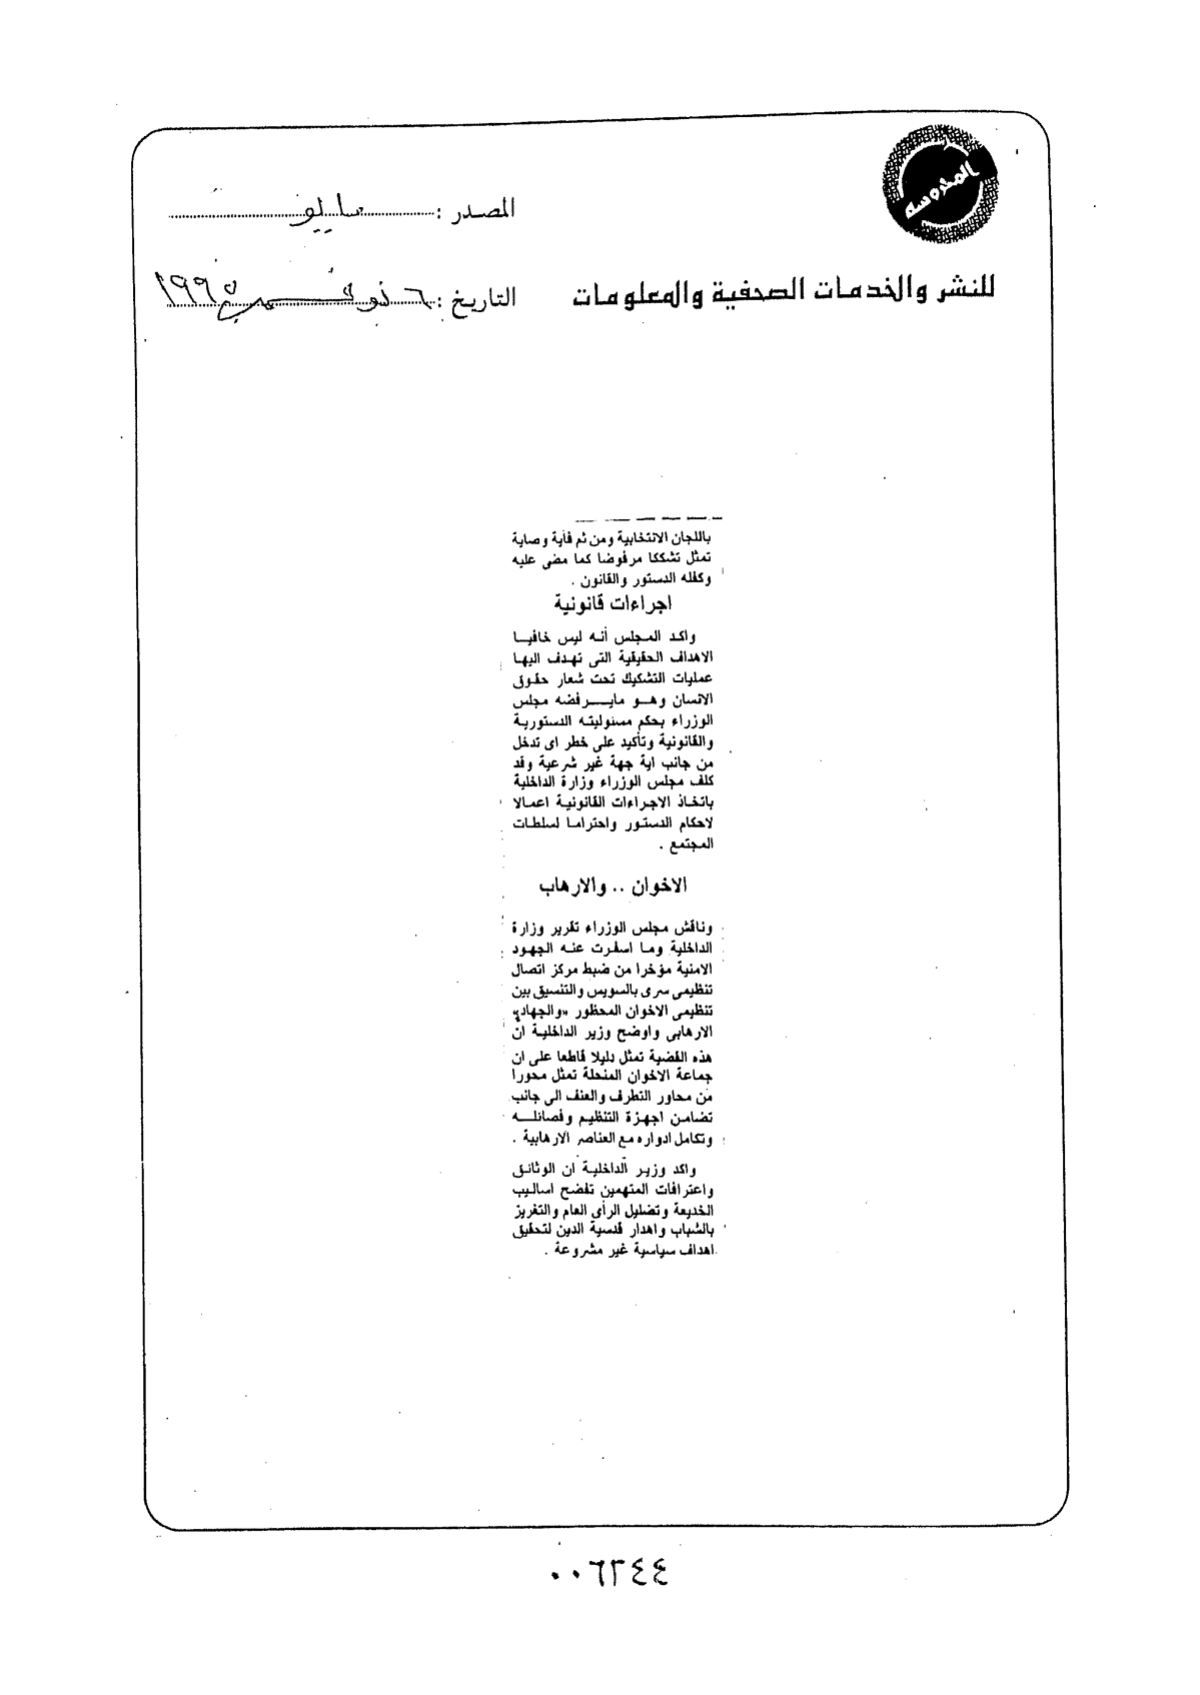 المحروسة
المصدر : مايو
للنشر والخدمات الصحفية والمعلومات
التاريخ : ٦ نوفمبر ١٩٩٥
باللجان الانتخابية ومن ثم فأية وصاية
تمثل تشككا مرفوضا كما مضى عليه
وكفله الدستور والقانون .
اجراءات قانونية
واكد المجلس أنه ليس خافيا
الاهداف الحقيقية التى تهدف اليها
عمليات التشكيك تحت شعار حقوق
الانسان وهو مايرفضه مجلس
الوزراء بحكم مسئوليته الدستورية
والقانونية وتأكيد على خطر اى تدخل
من جانب اية جهة غير شرعية وقد
كلف مجلس الوزراء وزارة الداخلية
باتخاذ الاجراءات القانونية اعمالا
لاحكام الدستور واحتراما لسلطات
المجتمع .
الاخوان .. والارهاب
وناقش مجلس الوزراء تقرير وزارة
الداخلية وما اسفرت عنه الجهود
الامنية مؤخرا من ضبط مركز اتصال
تنظيمى سرى بالسويس والتنسيق بين
تنظيمى الاخوان المحظور «والجهاد»
الارهابى واوضح وزير الداخلية ان
هذه القضية تمثل دليلا قاطعا على ان
جماعة الاخوان المنحلة تمثل محورا
من محاور التطرف والعنف الى جانب
تضامن اجهزة التنظيم وفصائله
وتكامل ادواره مع العناصر الارهابية .
واكد وزير الداخلية ان الوثائق
واعترافات المتهمين تفضح اساليب
الخديعة وتضليل الرأى العام والتغرير
بالشباب واهدار قدسية الدين لتحقيق
اهداف سياسية غير مشروعة .
٠٠٦٢٤٤